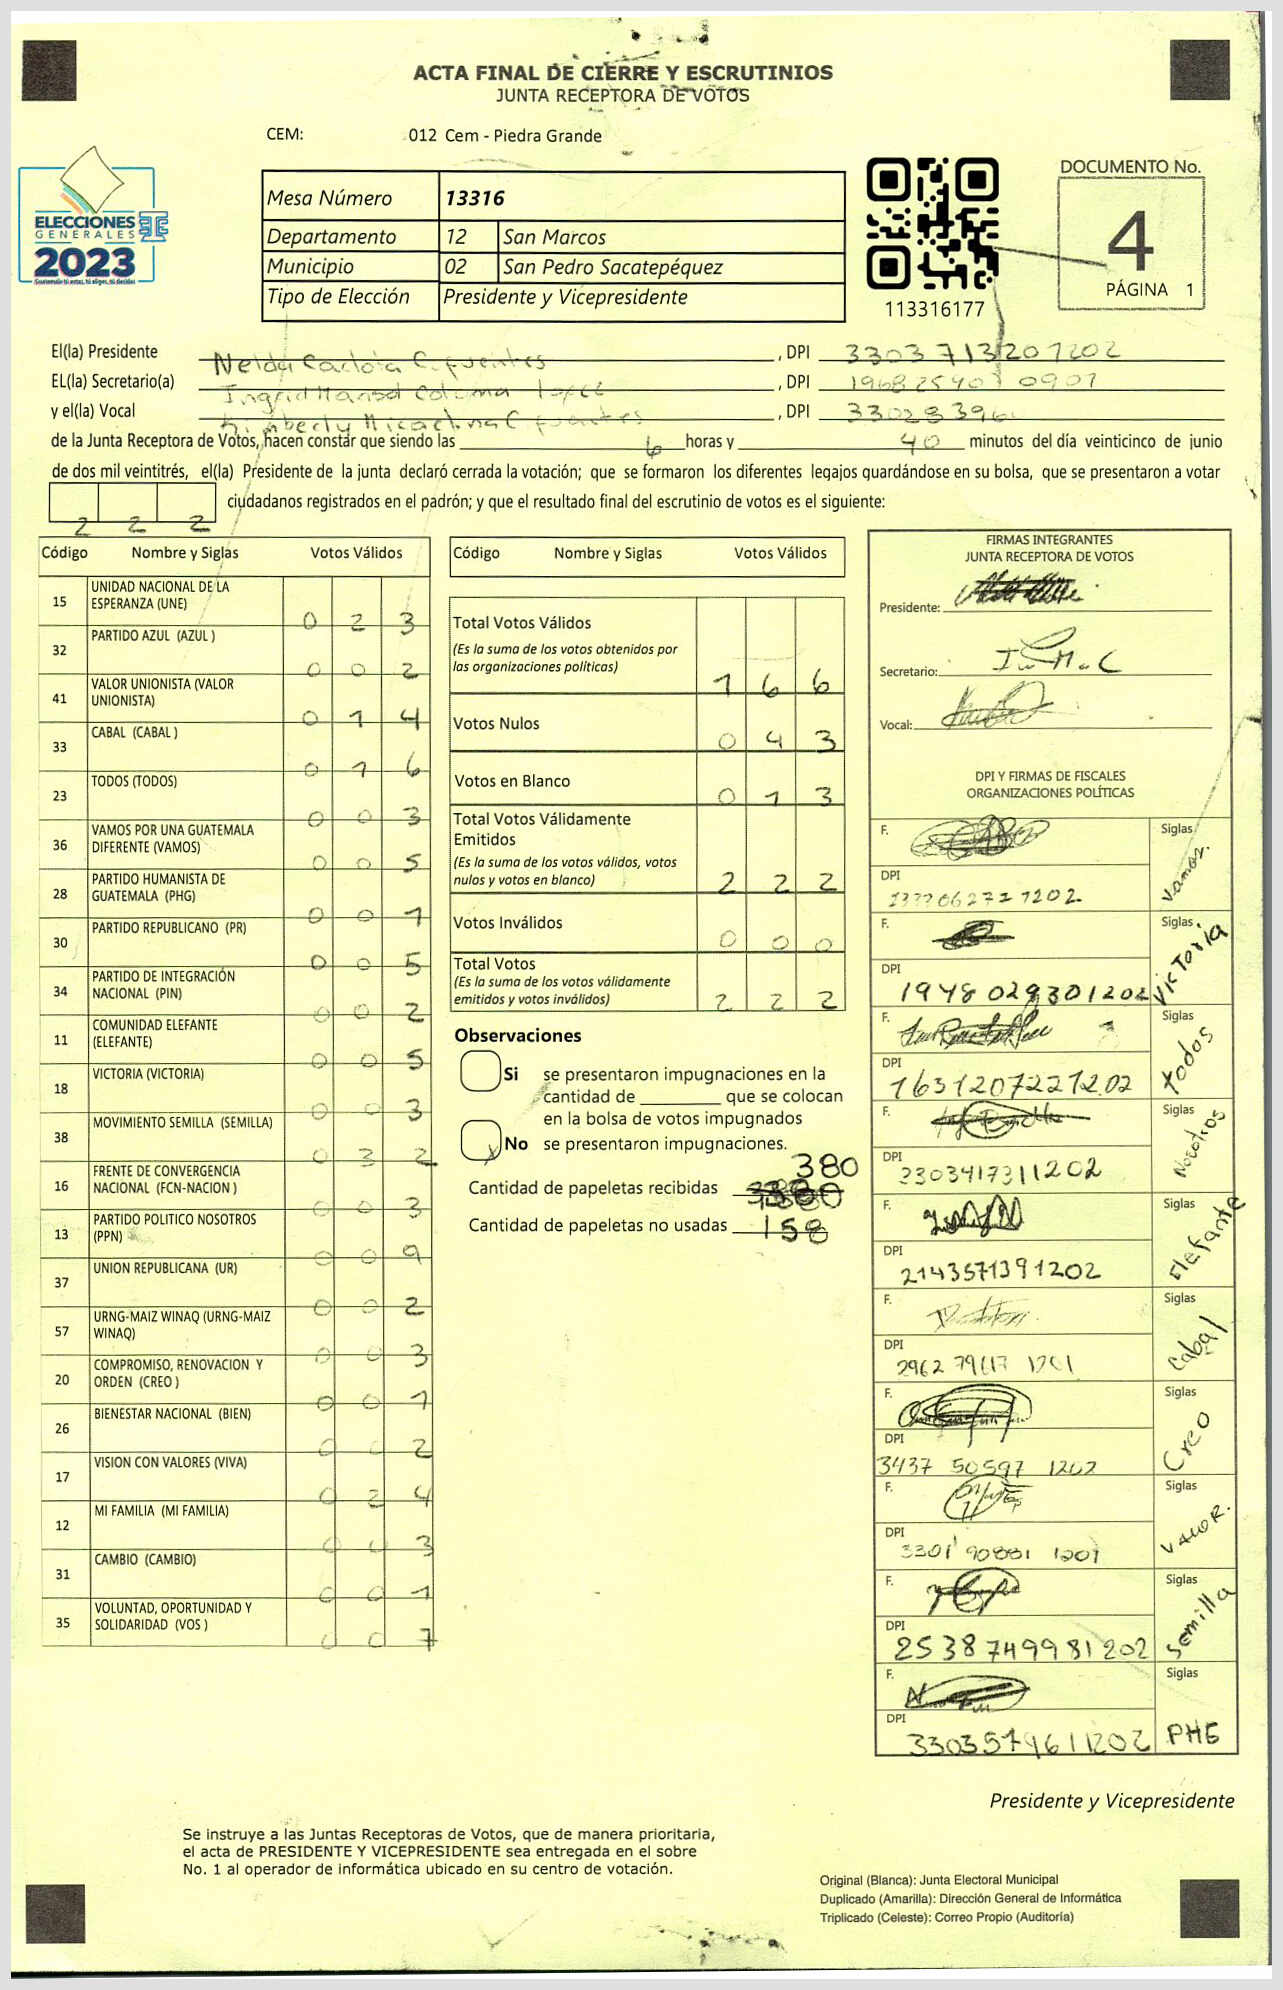 ACTA FINAL DE CIERRE Y ESCRUTINIOS
JUNTA RECEPTORA DE VOTOS
CEM: 012 Cem - Piedra Grande
ELECCIONES
GENERALES
2023
Mesa Número 13316
Departamento 12 San Marcos
Municipio 02 San Pedro Sacatepéquez
Tipo de Elección Presidente y Vicepresidente
113316177
DOCUMENTO No.
4
PÁGINA 1
El(la) Presidente Nelda Cifuentes, DPI 3303 713201202
EL(la) Secretario(a) Ingrid Coloma López, DPI
y el(la) Vocal Kimberly Micaelina Cifuentes, DPI
de la Junta Receptora de Votos, hacen constar que siendo las 6 horas y 40 minutos del día veinticinco de junio
de dos mil veintitrés, el(la) Presidente de la junta declaró cerrada la votación; que se formaron los diferentes legajos guardándose en su bolsa, que se presentaron a votar
222 ciudadanos registrados en el padrón; y que el resultado final del escrutinio de votos es el siguiente:
Código Nombre y Siglas Votos Válidos
15 UNIDAD NACIONAL DE LA ESPERANZA (UNE) 0 2 3
32 PARTIDO AZUL (AZUL ) 0 0 2
41 VALOR UNIONISTA (VALOR UNIONISTA) 0 1 4
33 CABAL (CABAL ) 0 1 6
23 TODOS (TODOS) 0 0 3
36 VAMOS POR UNA GUATEMALA DIFERENTE (VAMOS) 0 0 5
28 PARTIDO HUMANISTA DE GUATEMALA (PHG) 0 0 1
30 PARTIDO REPUBLICANO (PR) 0 0 5
34 PARTIDO DE INTEGRACIÓN NACIONAL (PIN) 0 0 2
11 COMUNIDAD ELEFANTE (ELEFANTE) 0 0 5
18 VICTORIA (VICTORIA) 0 0 3
38 MOVIMIENTO SEMILLA (SEMILLA) 0 3 2
16 FRENTE DE CONVERGENCIA NACIONAL (FCN-NACION ) 0 0 3
13 PARTIDO POLITICO NOSOTROS (PPN) 0 0 9
37 UNION REPUBLICANA (UR) 0 0 2
57 URNG-MAIZ WINAQ (URNG-MAIZ WINAQ) 0 0 3
20 COMPROMISO, RENOVACION Y ORDEN (CREO ) 0 0 1
26 BIENESTAR NACIONAL (BIEN) 0 0 2
17 VISION CON VALORES (VIVA) 0 2 4
12 MI FAMILIA (MI FAMILIA) 0 0 3
31 CAMBIO (CAMBIO) 0 0 1
35 VOLUNTAD, OPORTUNIDAD Y SOLIDARIDAD (VOS ) 0 0 7
Código Nombre y Siglas Votos Válidos
Total Votos Válidos 1 6 6
(Es la suma de los votos obtenidos por las organizaciones políticas)
Votos Nulos 0 4 3
Votos en Blanco 0 1 3
Total Votos Válidamente Emitidos 2 2 2
(Es la suma de los votos válidos, votos nulos y votos en blanco)
Votos Inválidos 0 0 0
Total Votos 2 2 2
(Es la suma de los votos válidamente emitidos y votos inválidos)
Observaciones
Si se presentaron impugnaciones en la
cantidad de ________ que se colocan
en la bolsa de votos impugnados
x No se presentaron impugnaciones.
380
Cantidad de papeletas recibidas
Cantidad de papeletas no usadas 158
FIRMAS INTEGRANTES
JUNTA RECEPTORA DE VOTOS
Presidente:
Secretario:
Vocal:
DPI Y FIRMAS DE FISCALES
ORGANIZACIONES POLÍTICAS
F. Siglas Vamos.
DPI
F. Siglas Victoria
DPI 1948 029301202
F. Siglas todos
DPI 1631207221202
F. Siglas Nosotros
DPI 3303417311202
F. Siglas Elefante
DPI 2143571391202
F. Siglas Cabal
DPI
F. Siglas Creo
DPI 3437 50597 1202
F. Siglas VALOR.
DPI 3301 90881 1201
F. Siglas Semilla
DPI 2538749981202
F. Siglas PHG
DPI 3303579611202
Presidente y Vicepresidente
Se instruye a las Juntas Receptoras de Votos, que de manera prioritaria,
el acta de PRESIDENTE Y VICEPRESIDENTE sea entregada en el sobre
No. 1 al operador de informática ubicado en su centro de votación.
Original (Blanca): Junta Electoral Municipal
Duplicado (Amarilla): Dirección General de Informática
Triplicado (Celeste): Correo Propio (Auditoría)